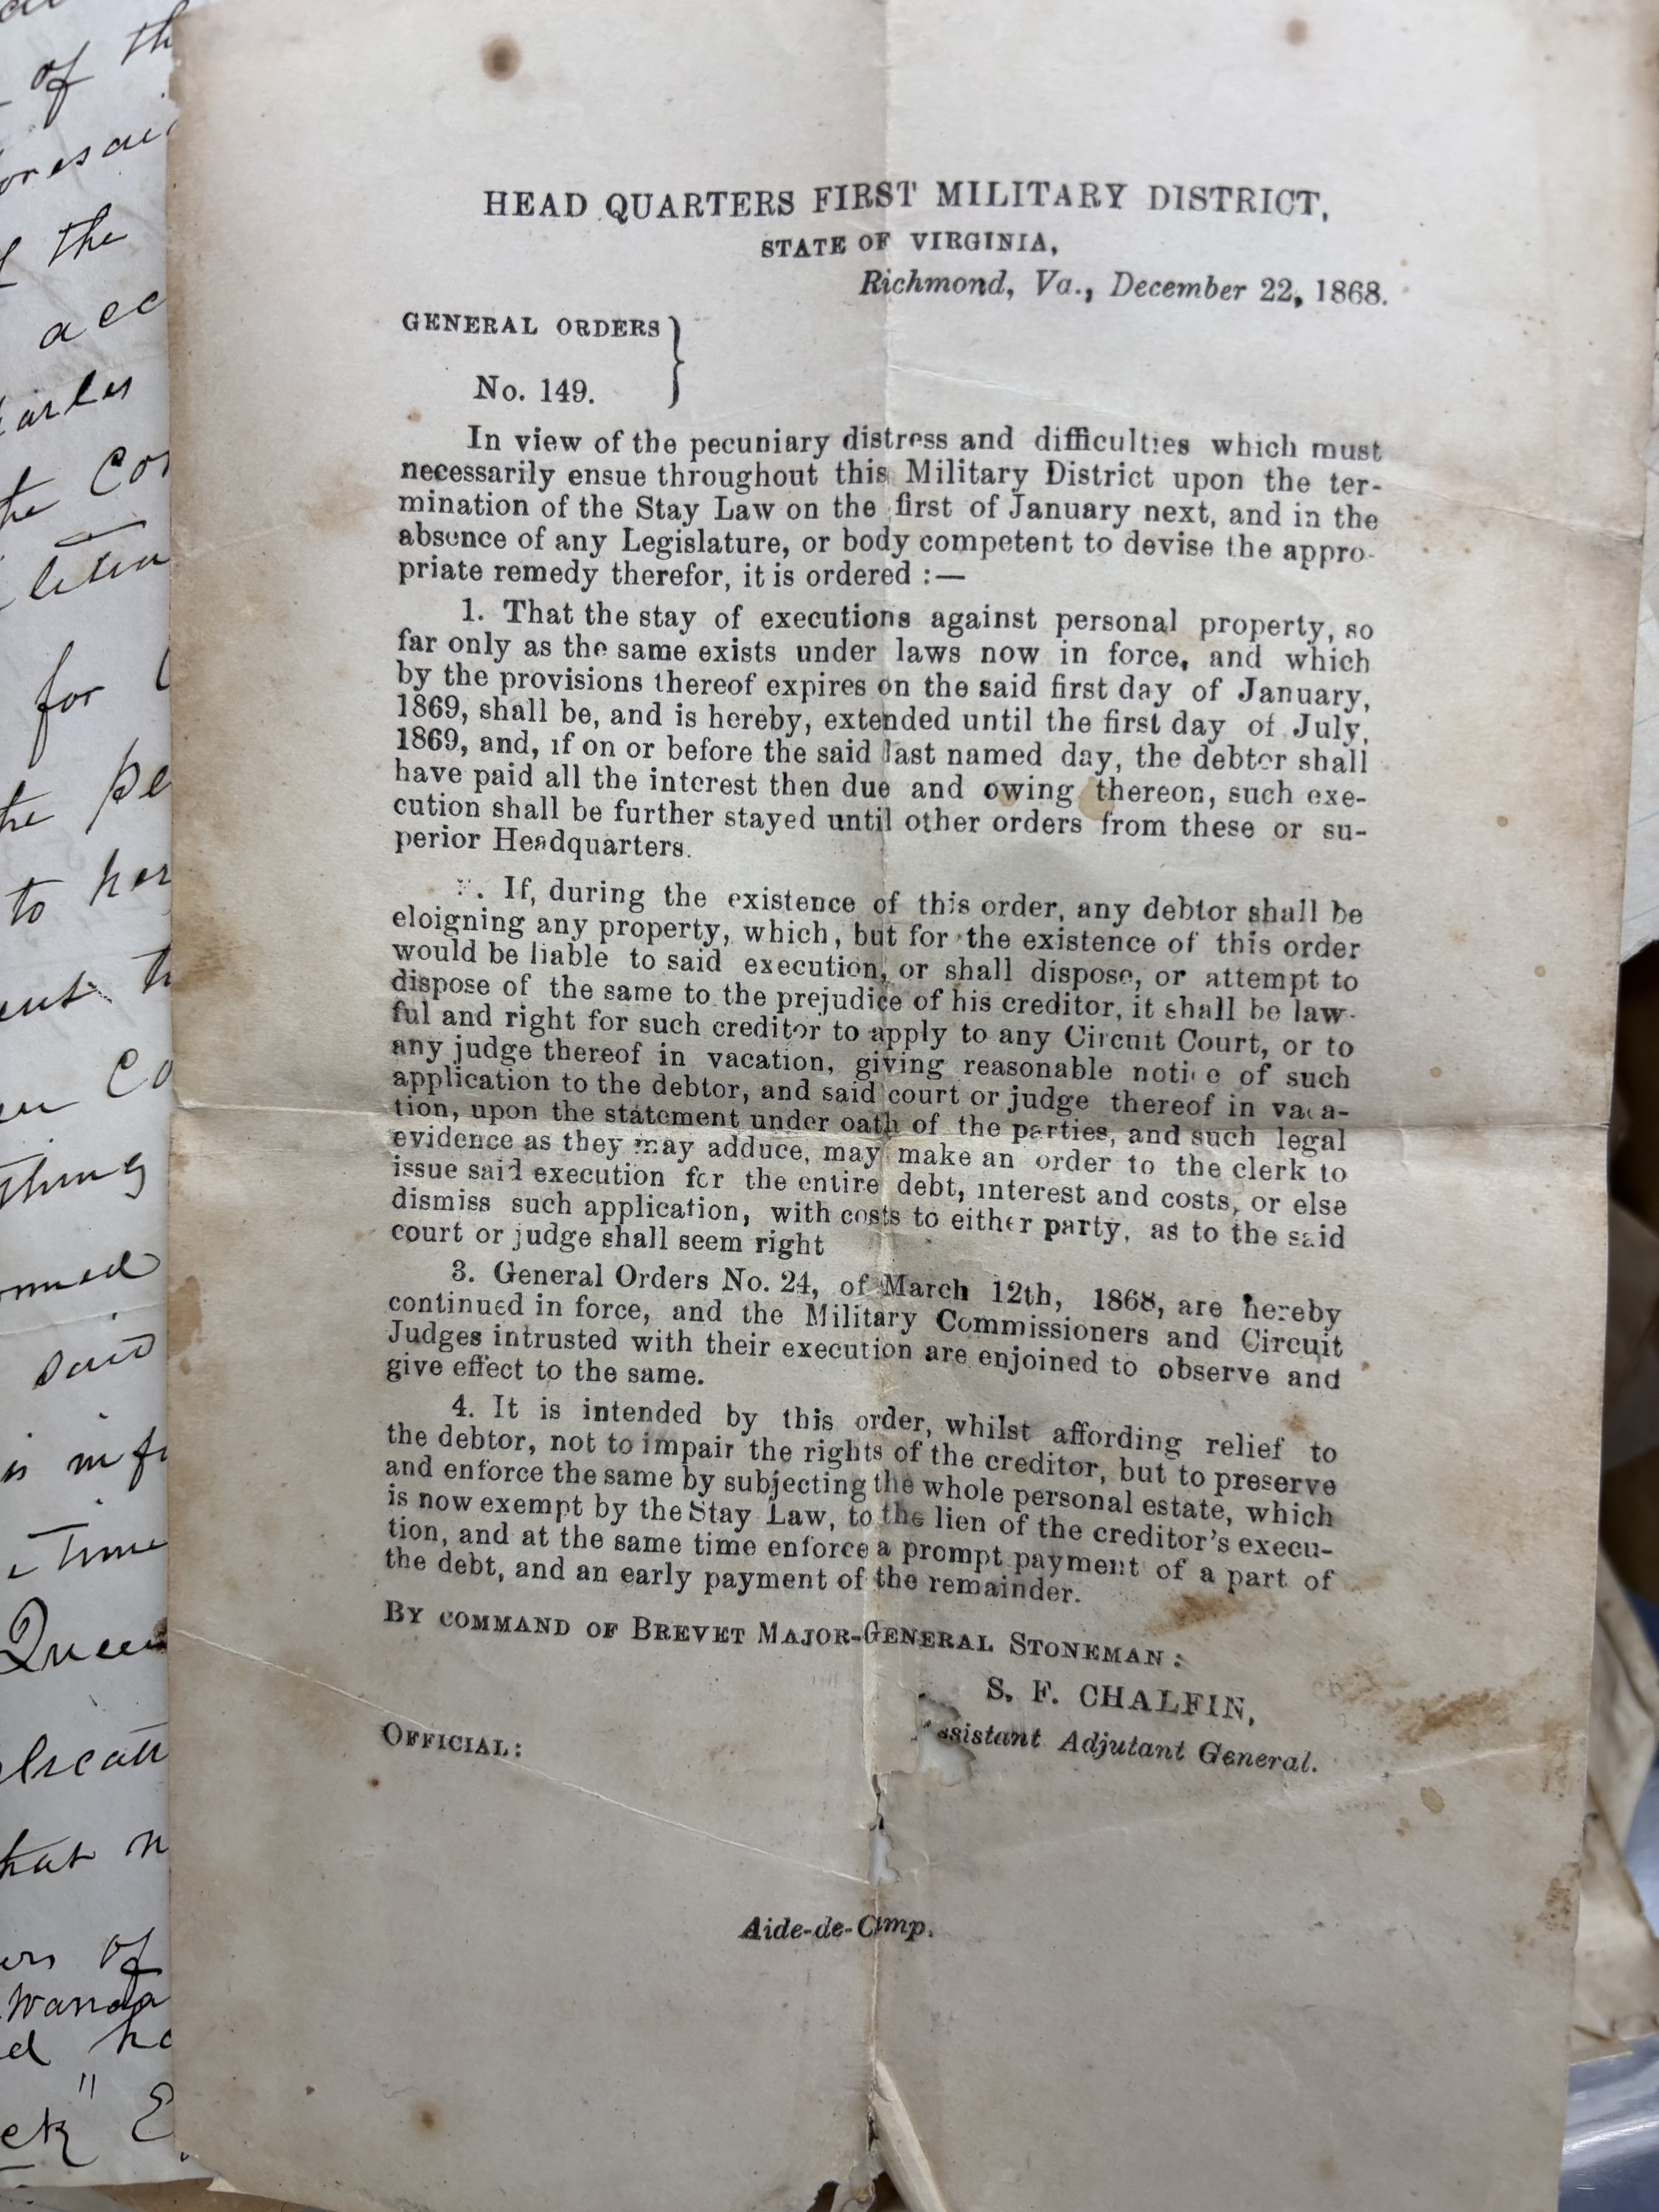 HEAD QUARTERS FIRST MILITARY DISTRICT,
STATE OF VIRGINIA,
Richmond, Va., December 22, 1868.
GENERAL ORDERS }
No. 149.
In view of the pecuniary distress and difficulties which must
necessarily ensue throughout this Military District upon the ter-
mination of the Stay Law on the first of January next, and in the
absence of any Legislature, or body competent to devise the appro-
priate remedy therefor, it is ordered :—
1. That the stay of executions against personal property, so
far only as the same exists under laws now in force, and which
by the provisions thereof expires on the said first day of January,
1869, shall be, and is hereby, extended until the first day of July,
1869, and, if on or before the said last named day, the debtor shall
have paid all the interest then due and owing thereon, such exe-
cution shall be further stayed until other orders from these or su-
perior Headquarters.
If, during the existence of this order, any debtor shall be
eloigning any property, which, but for the existence of this order
would be liable to said execution, or shall dispose, or attempt to
dispose of the same to the prejudice of his creditor, it shall be law-
ful and right for such creditor to apply to any Circuit Court, or to
any judge thereof in vacation, giving reasonable notice of such
application to the debtor, and said court or judge thereof in vaca-
tion, upon the statement under oath of the parties, and such legal
evidence as they may adduce, may make an order to the clerk to
issue said execution for the entire debt, interest and costs, or else
dismiss such application, with costs to either party, as to the said
court or judge shall seem right
3. General Orders No. 24, of March 12th, 1868, are hereby
continued in force, and the Military Commissioners and Circuit
Judges intrusted with their execution are enjoined to observe and
give effect to the same.
4. It is intended by this order, whilst affording relief to
the debtor, not to impair the rights of the creditor, but to preserve
and enforce the same by subjecting the whole personal estate, which
is now exempt by the Stay Law, to the lien of the creditor's execu-
tion, and at the same time enforce a prompt payment of a part of
the debt, and an early payment of the remainder.
BY COMMAND OF BREVET MAJOR-GENERAL STONEMAN:
S. F. CHALFIN,
Assistant Adjutant General.
OFFICIAL:
Aide-de-Camp.
of
the
for
to her
said
time
Queen
of